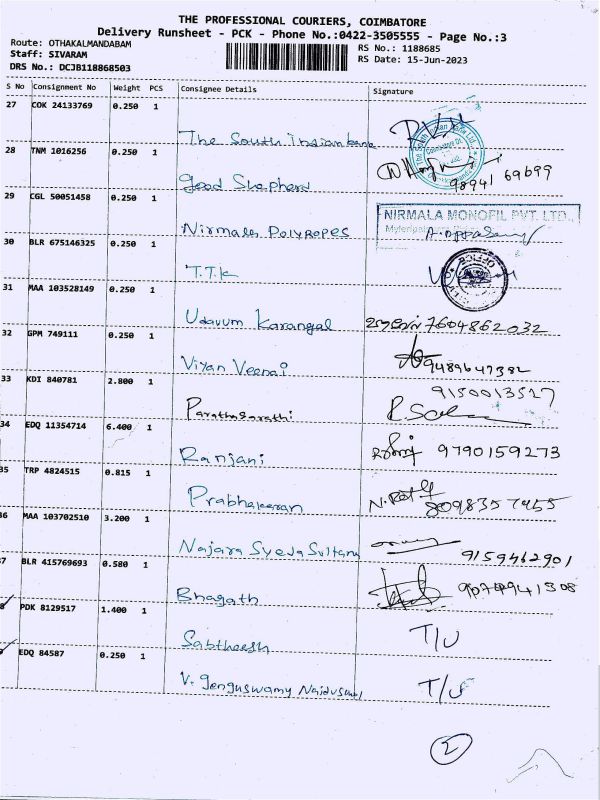 THE PROFESSIONAL COURIERS, COIMBATORE
Delivery Runsheet - PCK - Phone No.:0422-3505555 - Page No.:3
Route: OTHAKALMANDABAM
RS No.: 1188685
Staff: SIVARAM
RS Date: 15-Jun-2023
DRS No.: DCJB118868503
S No Consignment No Weight PCS Consignee Details Signature
27 COK 24133769 0.250 1
The South Indian bank
28 TNM 1016256 0.250 1
Good Shepherd
98941 69699
29 CGL 50051458 0.250 1
Nirmala Polyropes
NIRMALA MONOFIL PVT. LTD.,
30 BLR 675146325 0.250 1
T.T.K
31 MAA 103528149 0.250 1
Udavum Karangal
7604862032
32 GPM 749111 0.250 1
Viyan Veenai
9489647382
33 KDI 840781 2.800 1
9150013527
Parathasarathi
34 EDQ 11354714 6.400 1
Ranjani
9790159273
35 TRP 4824515 0.815 1
Prabhakaran
8098357955
36 MAA 103702510 3.200 1
Najara Syeda Sultana
9159462901
37 BLR 415769693 0.580 1
Bhagath
38 PDK 8129517 1.400 1
Sabtheesh
T/U
39 EDQ 84587 0.250 1
V. Jenguswamy
T/U
2